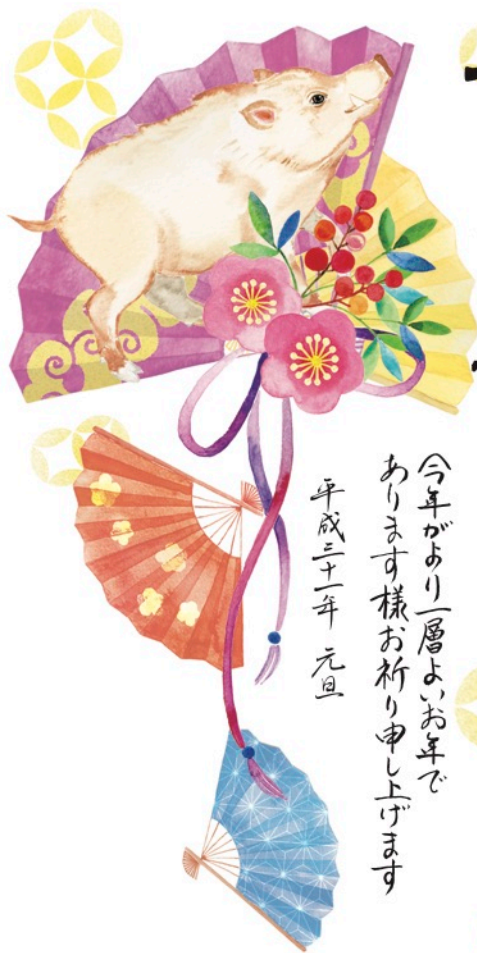 今年がより一層よいお年で
あります様お祈り申し上げます
平成三十一年 元旦